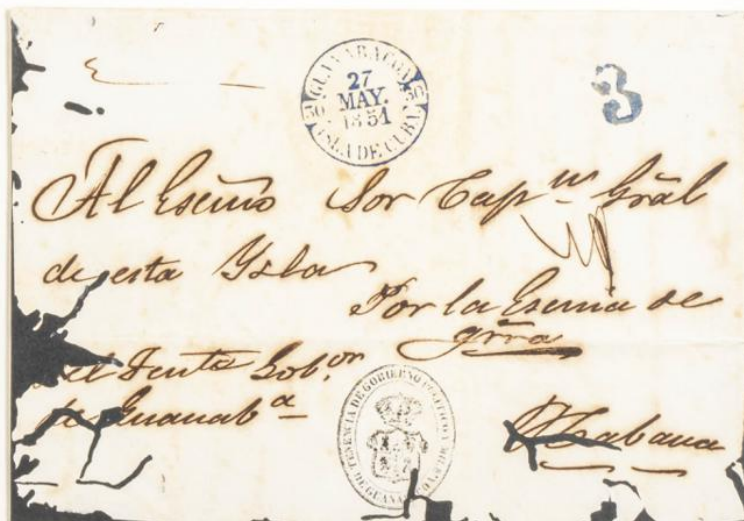 GUANABACOA
27
MAY.
1851
ISLA DE CUBA
30 30
3
Al Escmo Sor Cap.n Grãl
de esta Ysla
Por la Escmia de
grra
el Tente Gob.or
de Guanab.a
Habana
TENENCIA DE GOBIERNO POLITICO Y
DE GUANABACOA